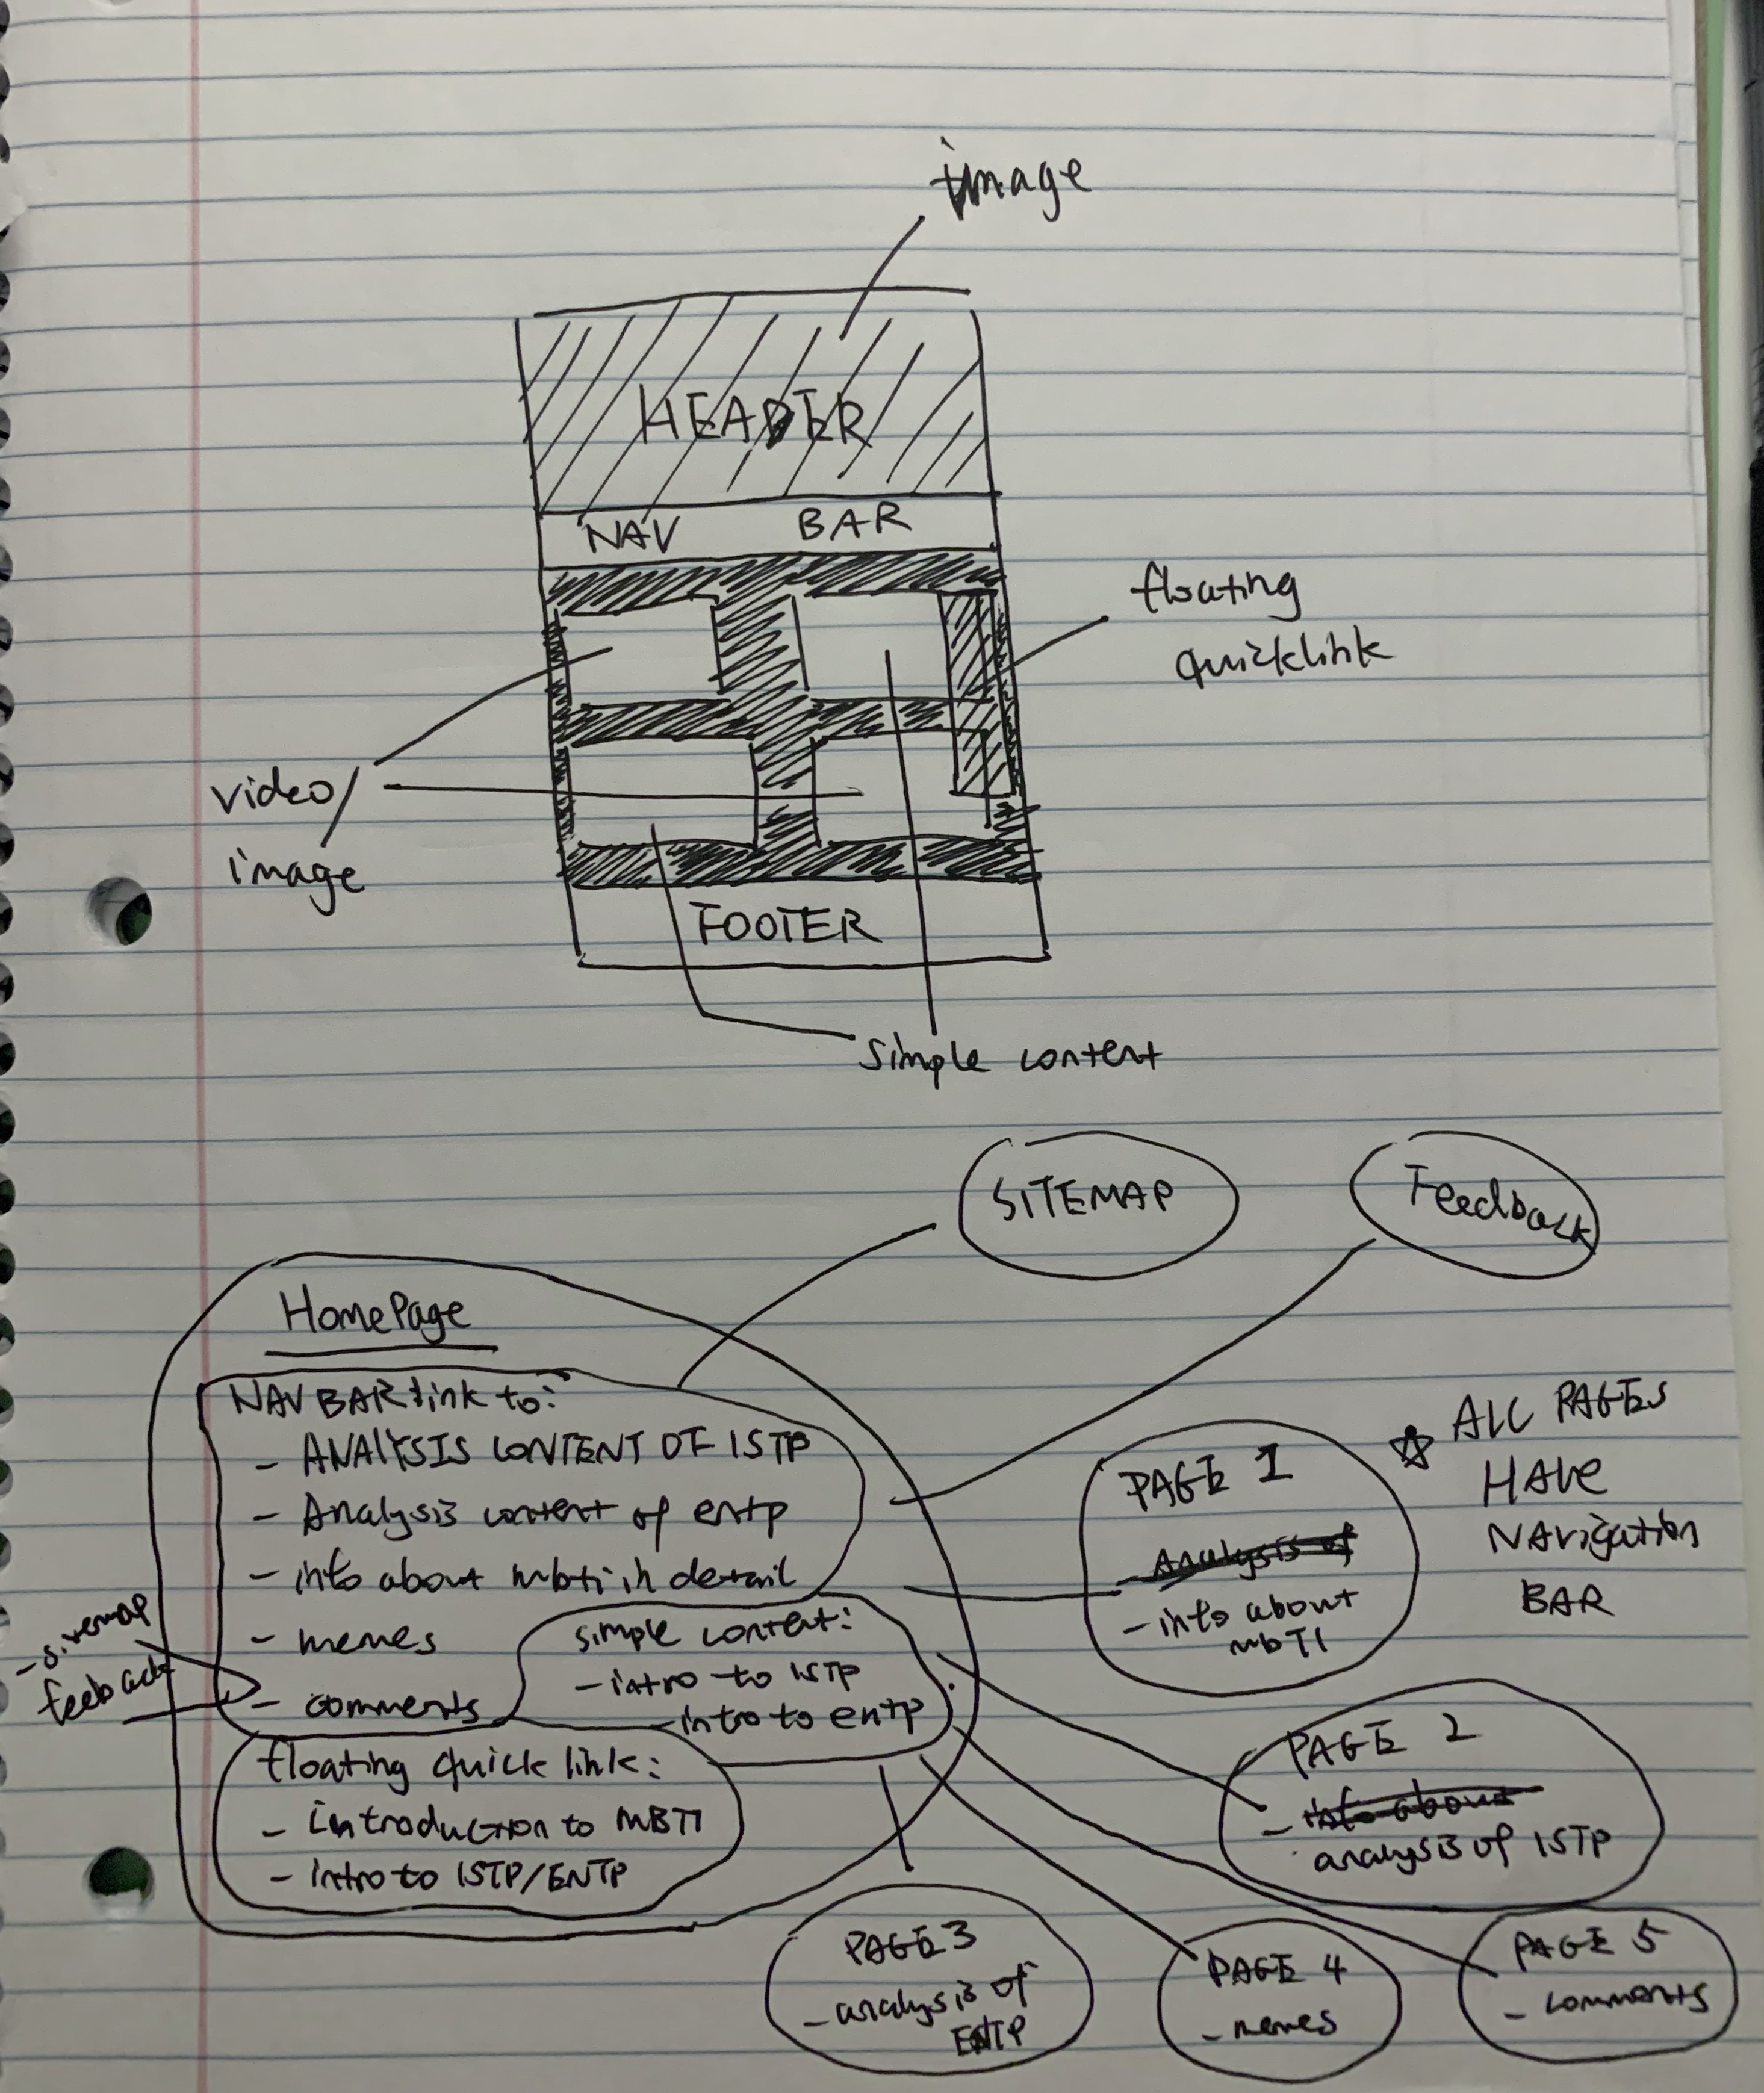 image
HEADER
NAV BAR
floating
quicklink
video/
image
FOOTER
simple content
SITEMAP
Feedback
HomePage
NAV BAR link to:
- ANALYSIS CONTENT OF ISTP
- Analysis content of entp
- info about mbti in detail
- memes
- comments
- sitemap
feeback
simple content:
- intro to ISTP
- intro to entp
floating quick link:
- introduction to MBTI
- intro to ISTP/ENTP
PAGE 1
- Analysis of
- info about
mbTI
☆ ALL PAGES
HAVE
NAVigation
BAR
PAGE 2
- info about
analysis of ISTP
PAGE 3
- analysis of
ENTP
PAGE 4
- memes
PAGE 5
- comments